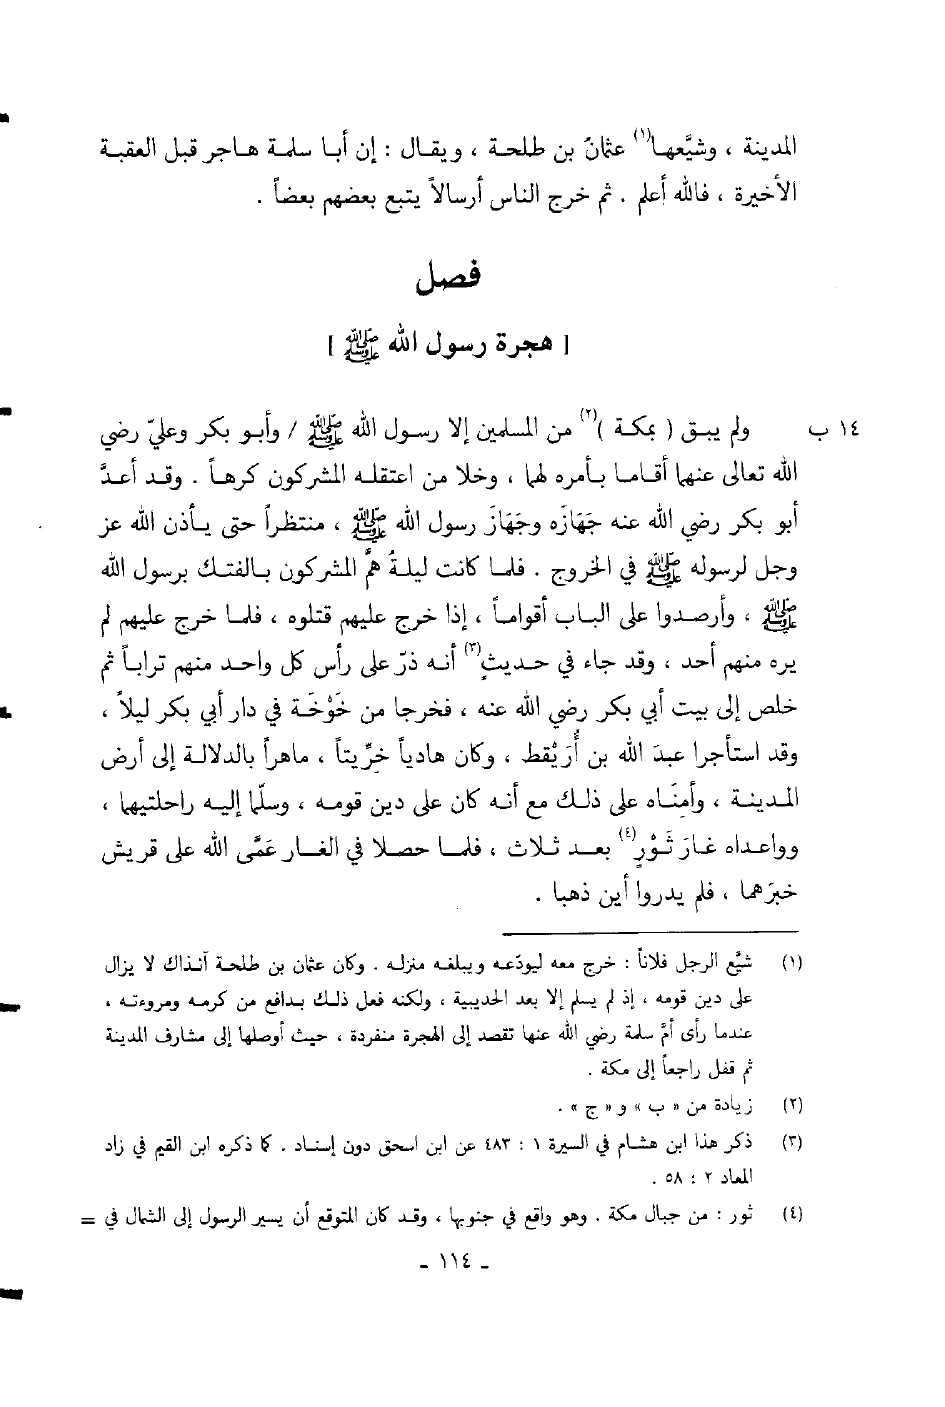 المدينة ، وشيَّعها(١) عثمانُ بن طلحة ، ويقال : إن أبا سلمة هاجر قبل العقبة
الأخيرة ، فالله أعلم . ثم خرج الناس أرسالاً يتبع بعضهم بعضاً .
فصل
[ هجرة رسول الله ﷺ ]
١٤ ب ولم يبق ( بمكة )(٢) من المسلمين إلا رسول الله ﷺ / وأبو بكر وعليّ رضي
الله تعالى عنهما أقاما بأمره لهما ، وخلا من اعتقله المشركون كرهاً . وقد أعدَّ
أبو بكر رضي الله عنه جَهَازَه وجَهَازَ رسول الله ﷺ ، منتظراً حتى يأذن الله عز
وجل لرسوله ﷺ في الخروج . فلما كانت ليلةُ همَّ المشركون بالفتك برسول الله
ﷺ ، وأرصدوا على الباب أقواماً ، إذا خرج عليهم قتلوه ، فلما خرج عليهم لم
يره منهم أحد ، وقد جاء في حديثٍ(٣) أنه ذرّ على رأس كل واحد منهم تراباً ثم
خلص إلى بيت أبي بكر رضي الله عنه ، فخرجا من خَوْخَة في دار أبي بكر ليلاً ،
وقد استأجرا عبدَ الله بن أُرَيْقط ، وكان هادياً خرِّيتاً ، ماهراً بالدلالة إلى أرض
المدينة ، وأمِنَاه على ذلك مع أنه كان على دين قومه ، وسلّما إليه راحلتيهما ،
وواعداه غارَ ثَوْرٍ(٤) بعد ثلاث ، فلما حصلا في الغار عَمَّى الله على قريش
خبرَهما ، فلم يدروا أين ذهبا .
(١) شيَّع الرجل فلاناً : خرج معه ليودّعه ويبلغه منزله . وكان عثمان بن طلحة آنذاك لا يزال
على دين قومه ، إذ لم يسلم إلا بعد الحديبية ، ولكنه فعل ذلك بدافع من كرمه ومروءته ،
عندما رأى أمَّ سلمة رضي الله عنها تقصد إلى الهجرة منفردة ، حيث أوصلها إلى مشارف المدينة
ثم قفل راجعاً إلى مكة .
(٢) زيادة من « ب » و « ج » .
(٣) ذكر هذا ابن هشام في السيرة ١ : ٤٨٣ عن ابن اسحق دون إسناد . كما ذكره ابن القيم في زاد
المعاد ٢ : ٥٨ .
(٤) ثور : من جبال مكة . وهو واقع في جنوبها ، وقد كان المتوقع أن يسير الرسول إلى الشمال في =
- ١١٤ -